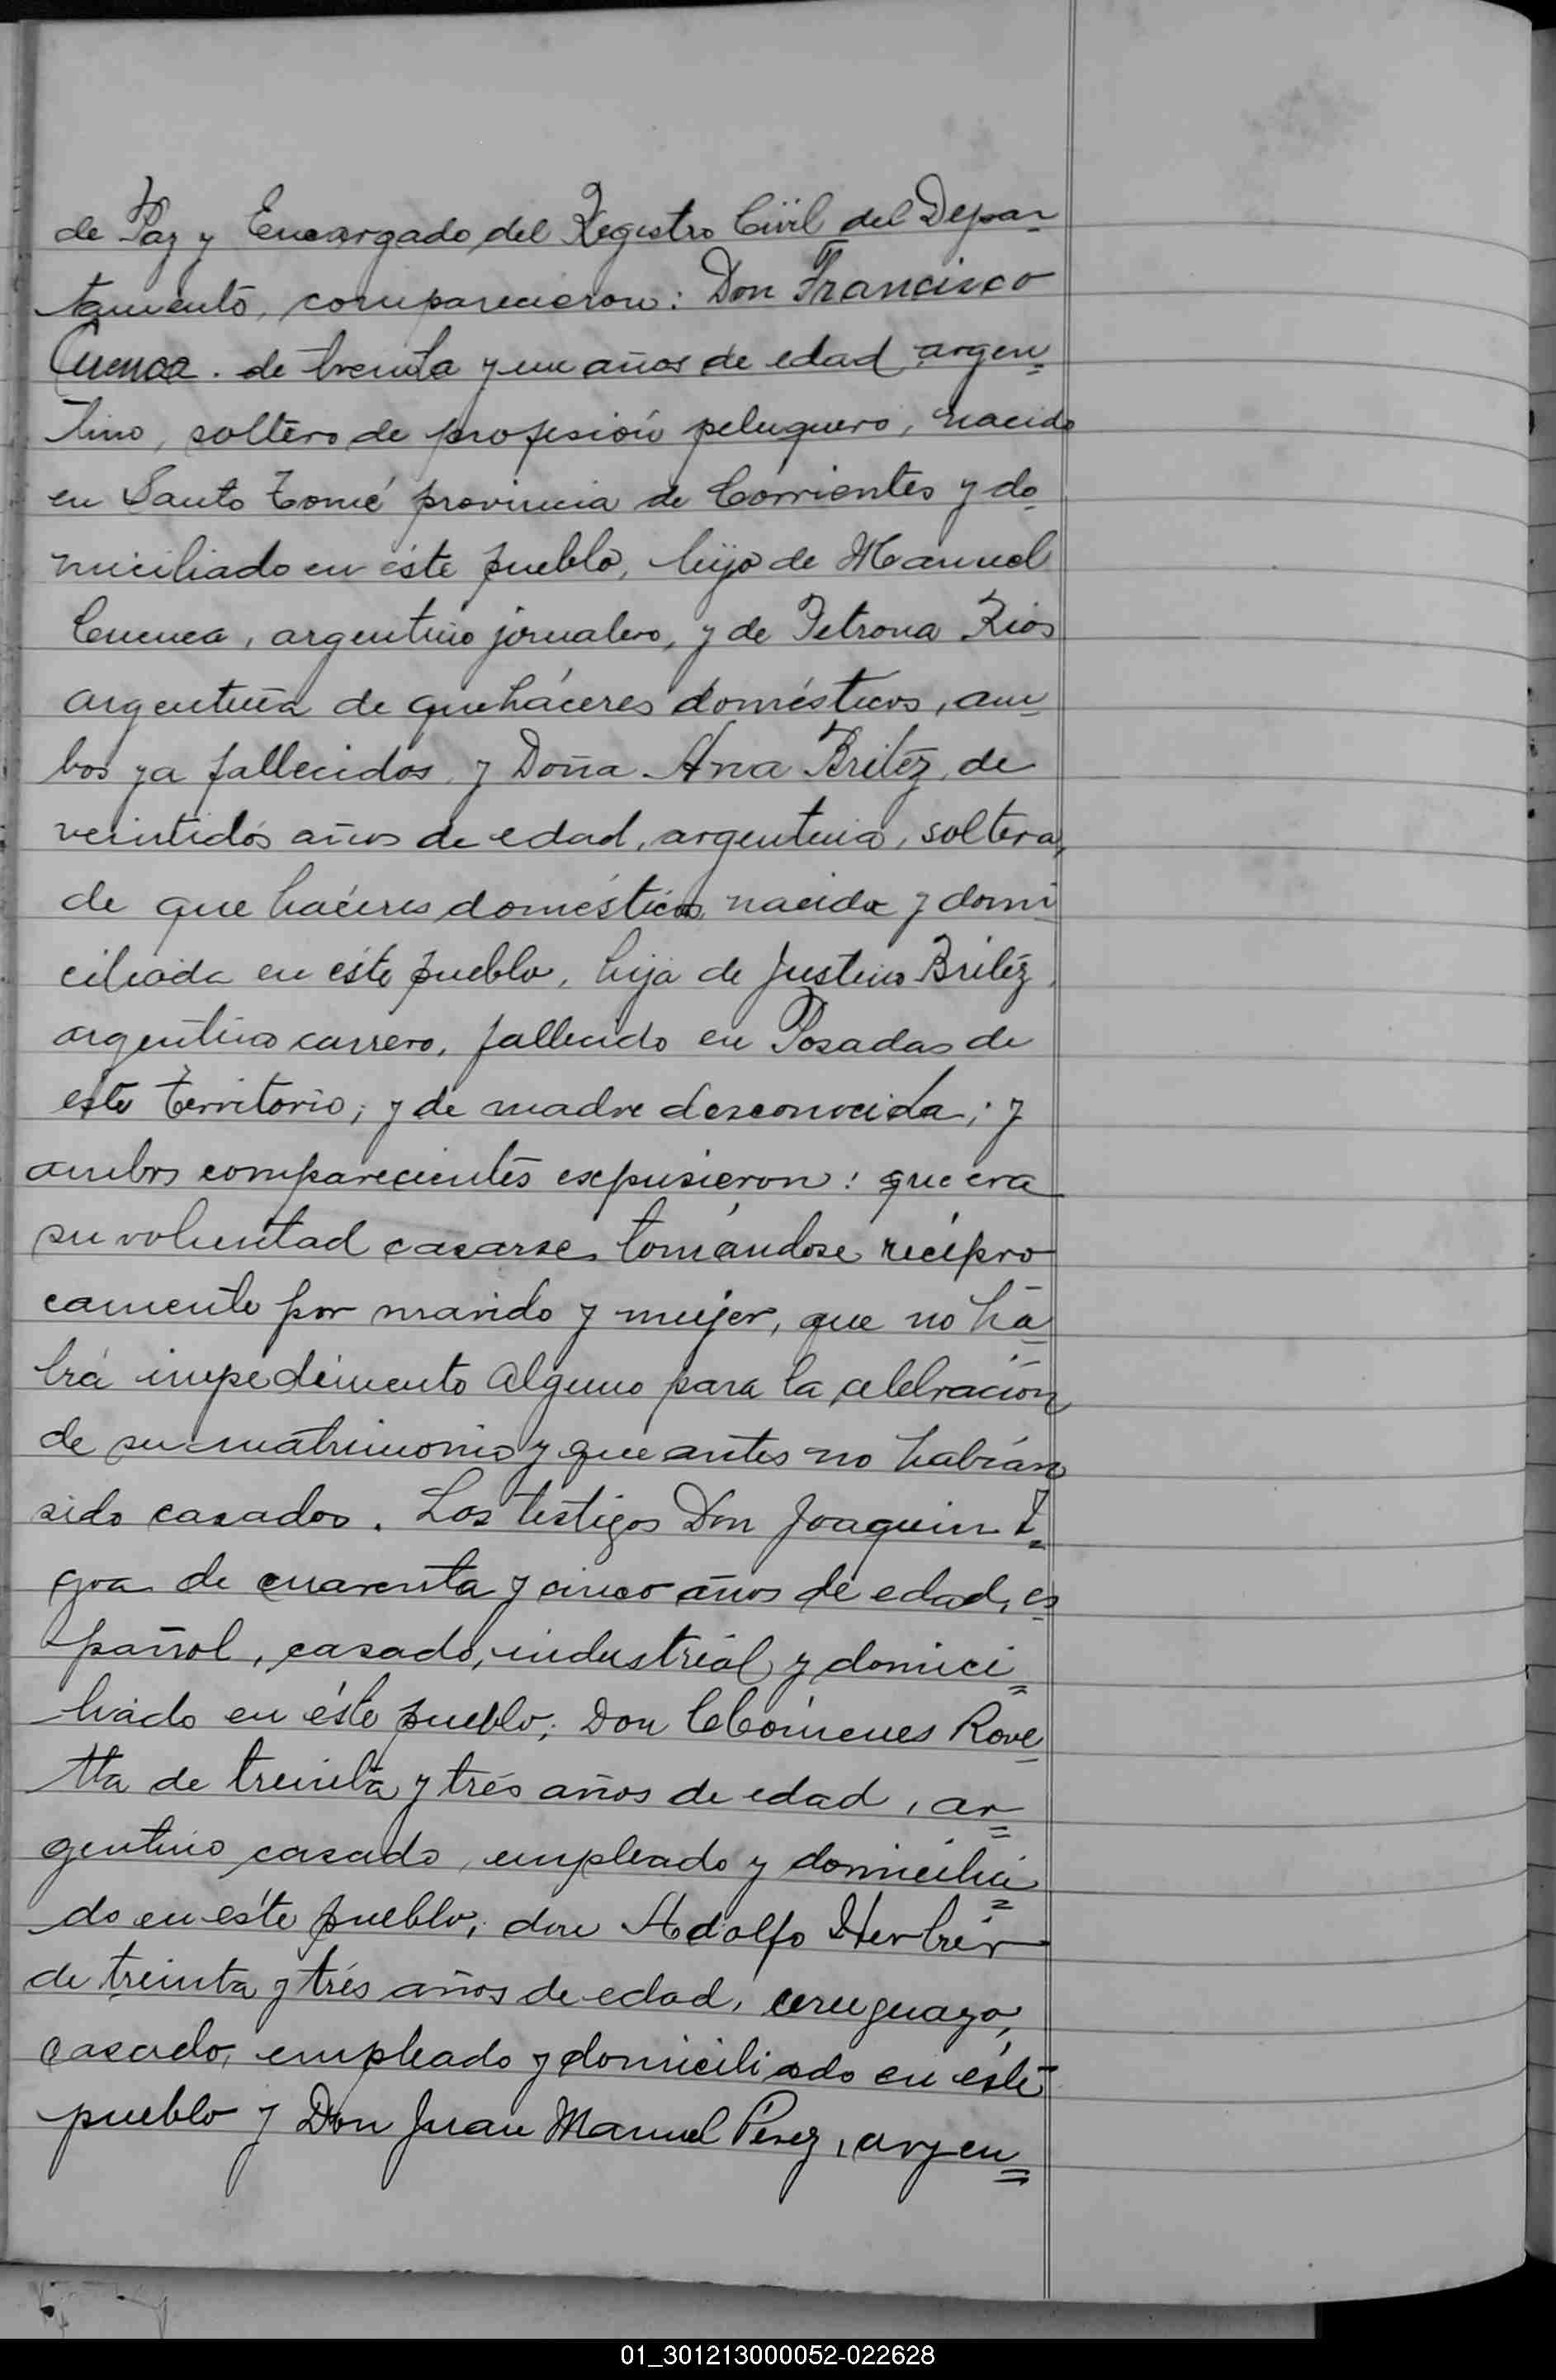 de Paz y Encargado del Registro Civil del Depar-
tamento, comparecieron: Don Francisco
Cuenca. de treinta y un años de edad argen=
tino, soltero de profesión peluquero, nacido
en Santo Tomé provincia de Corrientes y do-
miciliado en éste pueblo, hijo de Manuel
Cuenca, argentino jornalero, y de Petrona Rios
argentina de quehaceres domésticos, am-
bos ya fallecidos, y Doña Ana Britéz, de
veintidós años de edad, argentina, soltera,
de que haceres domésticos, nacida y domi-
ciliada en éste pueblo, hija de Justino Britéz,
argentino carrero, fallecido en Posadas de
este Territorio; y de madre desconocida; y
ambos comparecientes expusieron: que era
su voluntad casarse, tomándose recipro
camente por marido y mujer, que no ha=
brá impedimento alguno para la celebración
de su matrimonio y que antes no habían
sido casados. Los testigos Don Joaquin I=
goa de cuarenta y cinco años de edad, es-
pañol, casado, industrial y domici=
liado en éste pueblo; Don Cleómenes Rove-
tta de treinta y trés años de edad, ar=
gentino casado, empleado y domicilia=
do en éste pueblo; don Adolfo Herbrér
de treinta y trés años de edad, uruguayo,
casado, empleado y domiciliado en éste
pueblo y Don Juan Manuel Pérez, argen=
01_301213000052-022628